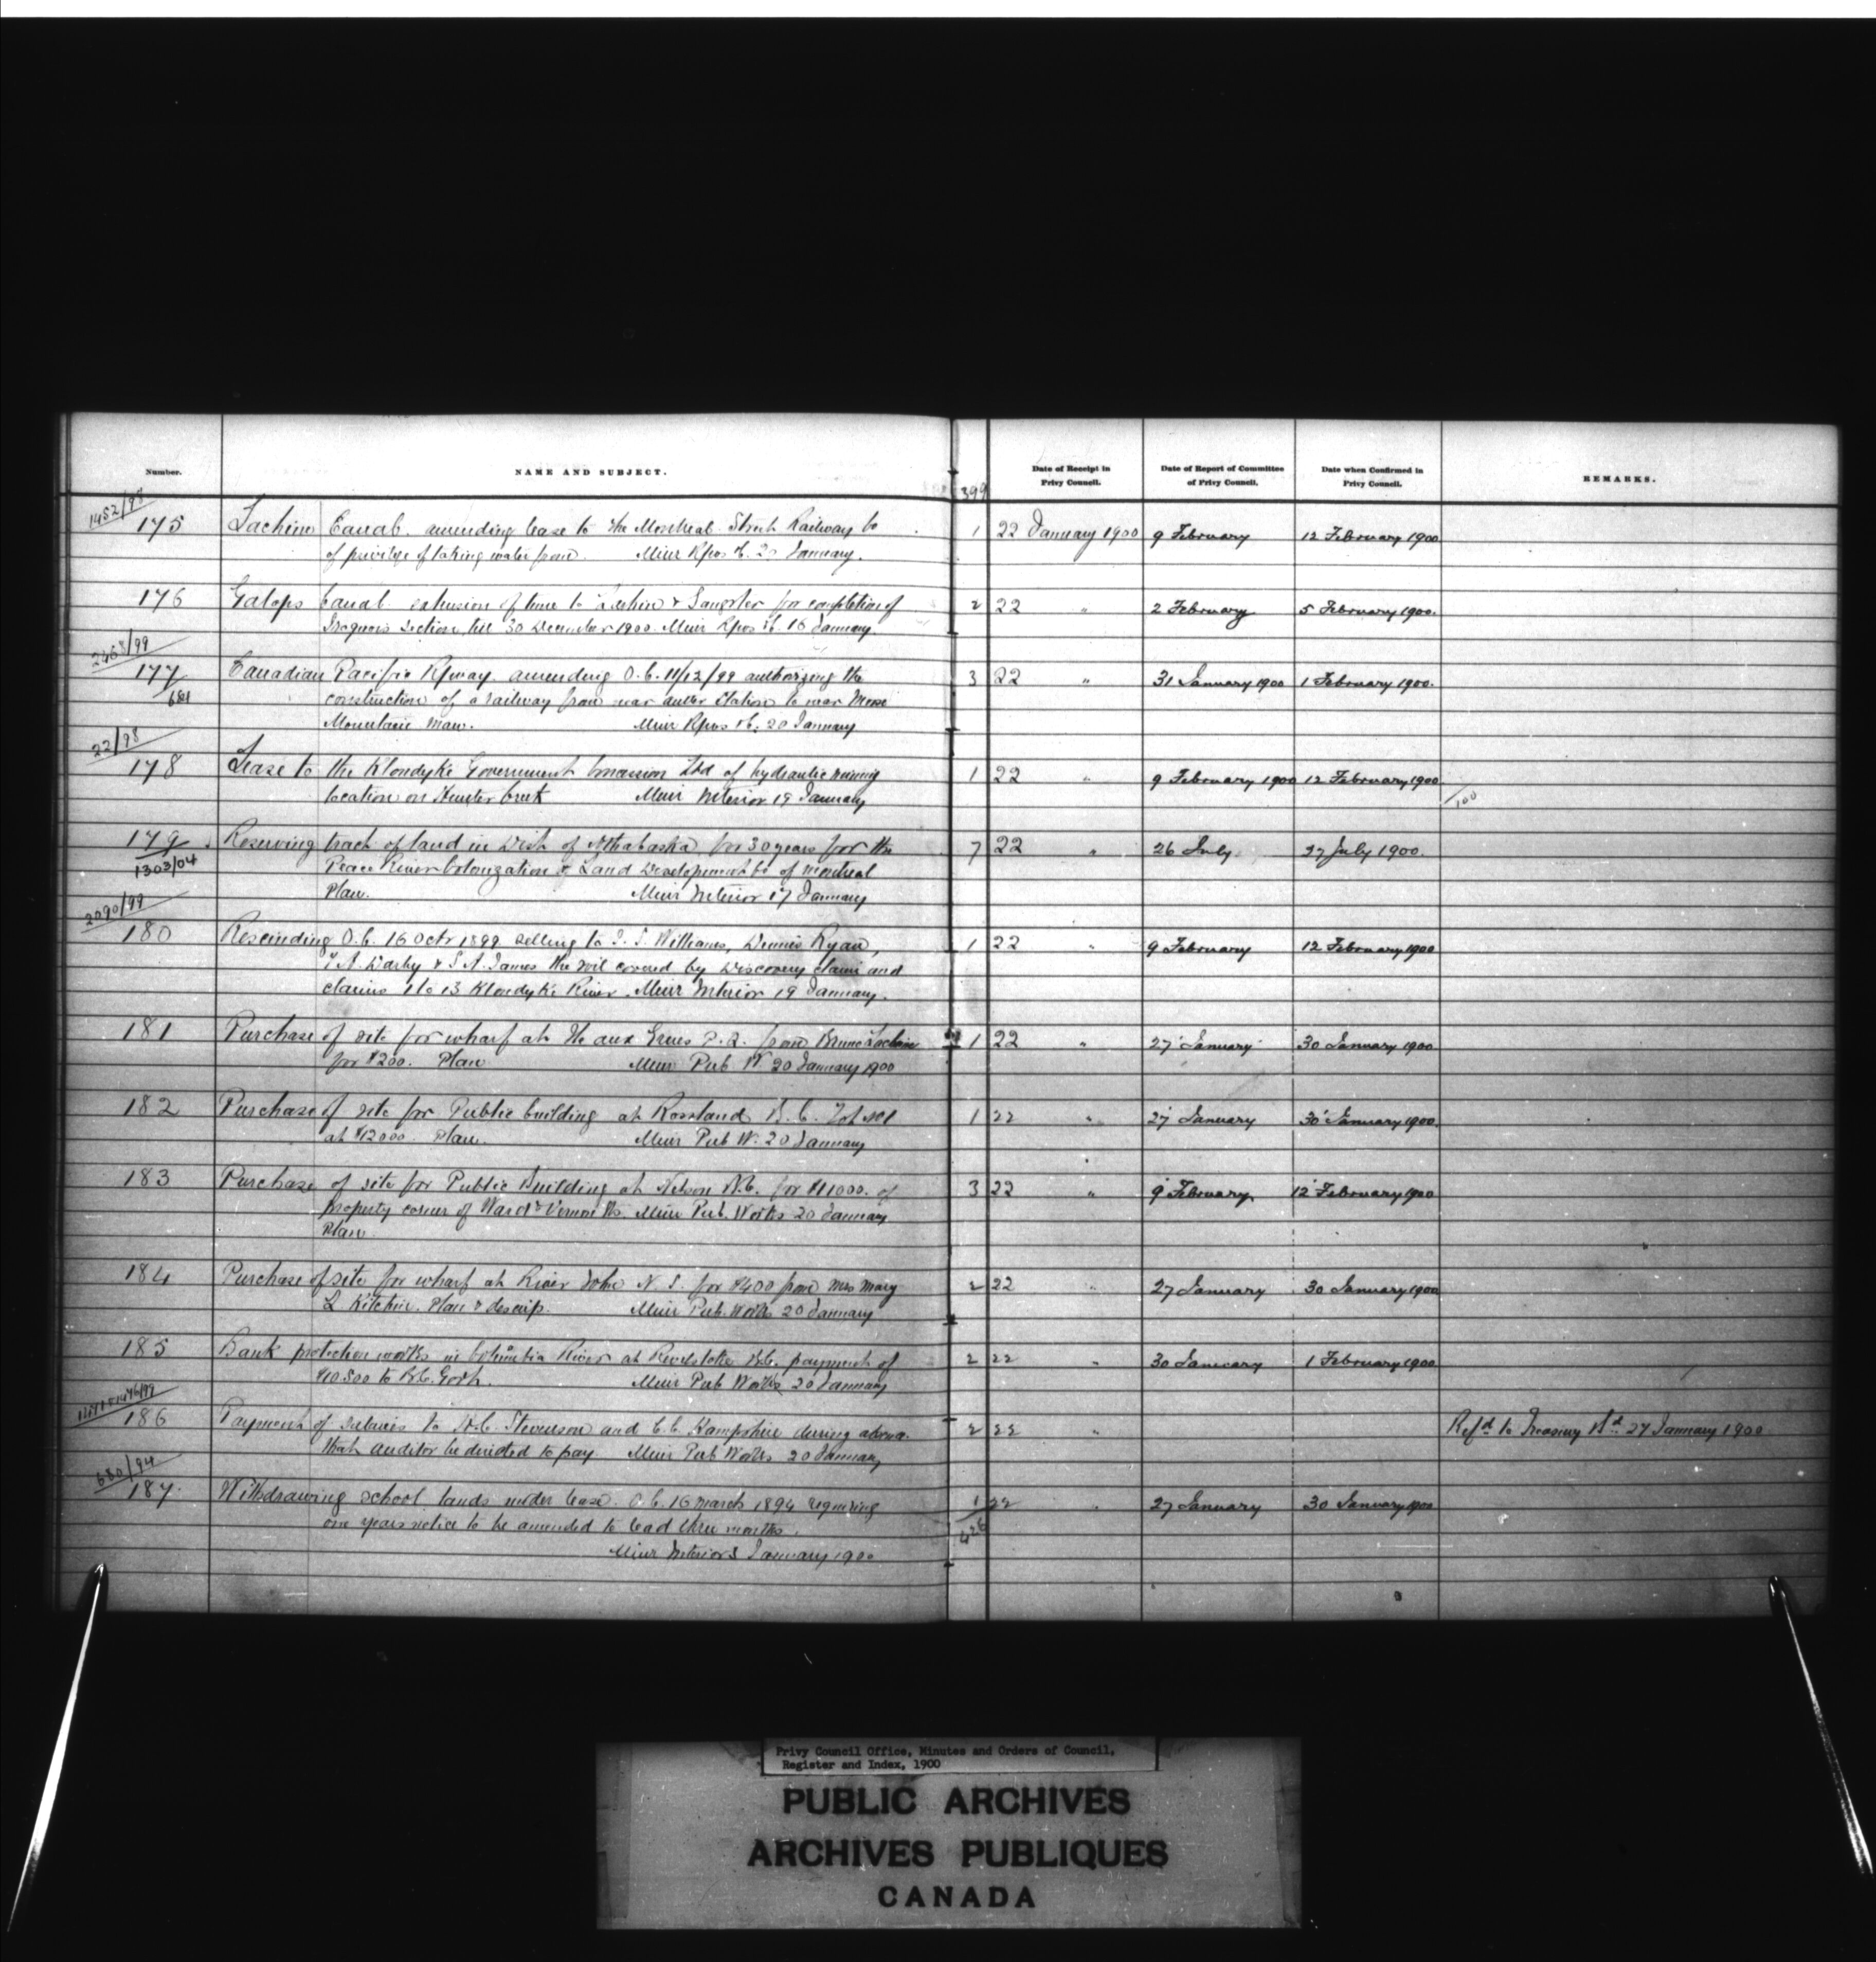 Number.
NAME AND SUBJECT.
399
Date of Receipt in Privy Council.
Date of Report of Committee of Privy Council.
Date when Confirmed in Privy Council.
REMARKS.
1452/98
175 Lachine Canal amending lease to the Montreal Street Railway Co 1 22 January 1900 9 February 12 February 1900
of privilege of taking water from. Minr Rlws &c. 20 January.
176 Galops Canal extension of time to & Sangster for completion of 2 22 " 2 February 5 February 1900.
Iroquois section till 30 December 1900. Minr Rlws &c. 16 January.
2468/99
177 Canadian Pacific Rlway. amending O.C. 11/12/99 authorizing the 3 22 " 31 January 1900 1 February 1900.
681
construction of a railway from near Station to near Moose
Mountain Man. Minr Rlws &c. 20 January
22/98
178 Lease to the Klondyke Government Concession Ltd of hydraulic mining 1 22 " 9 February 1900 12 February 1900
location on Hunter Creek Minr Interior 19 January
/100
179 Reserving tract of land in Dist of Athabaska for 30 years for the 7 22 " 26 July 27 July 1900.
1303/04
Peace River Colonization & Land Developement Co of Montreal
Plan. Minr Interior 17 January
2090/99
180 Rescinding O.C. 16 Octr 1899 selling to Williams, Dennis Ryan, 1 22 " 9 February 12 February 1900
Darby & S A. James the soil covered by Discovery claim and
claims 1 to 13 Klondyke River. Minr Interior 19 January.
181 Purchase of site for wharf at Ile aux Grues P.Q. from Bruno 1 22 " 27 January 30 January 1900
for $200. Plan Minr Pub. W. 20 January 1900
182 Purchase of site for Public building at Rossland B.C. 1 22 " 27 January 30 January 1900.
at $12000. Plan. Minr Pub W. 20 January
183 Purchase of site for Public Building at Nelson B.C. for $11000. of 3 22 " 9 February, 12 February 1900
property corner of Ward & Vernon Sts. Minr Pub. Works 20 January
Plan.
184 Purchase of site for wharf at River John N.S. for $400 from Mrs Mary 2 22 " 27 January 30 January 1900
L Kitchin. Plan & descrip. Minr Pub. Works 20 January
185 Bank protection works in Columbia River at Revelstoke B.C. payment of 2 22 " 30 January 1 February 1900
$10.500 to B.C. Govt. Minr Pub Works 20 January
186 Payment of salaries to Stevenson and C.C. Hampshire during 2 22 " Refd to Treasury Bd 27 January 1900
that auditor be directed to pay Minr Pub Works 20 January
680/94
187. Withdrawing school lands under lease. O.C. 16 March 1894 requiring 1 22 " 27 January 30 January 1900
426
one years notice to be amended to read three months.
Minr Interior 5 January 1900
Privy Council Office, Minutes and Orders of Council,
Register and Index, 1900
PUBLIC ARCHIVES
ARCHIVES PUBLIQUES
CANADA